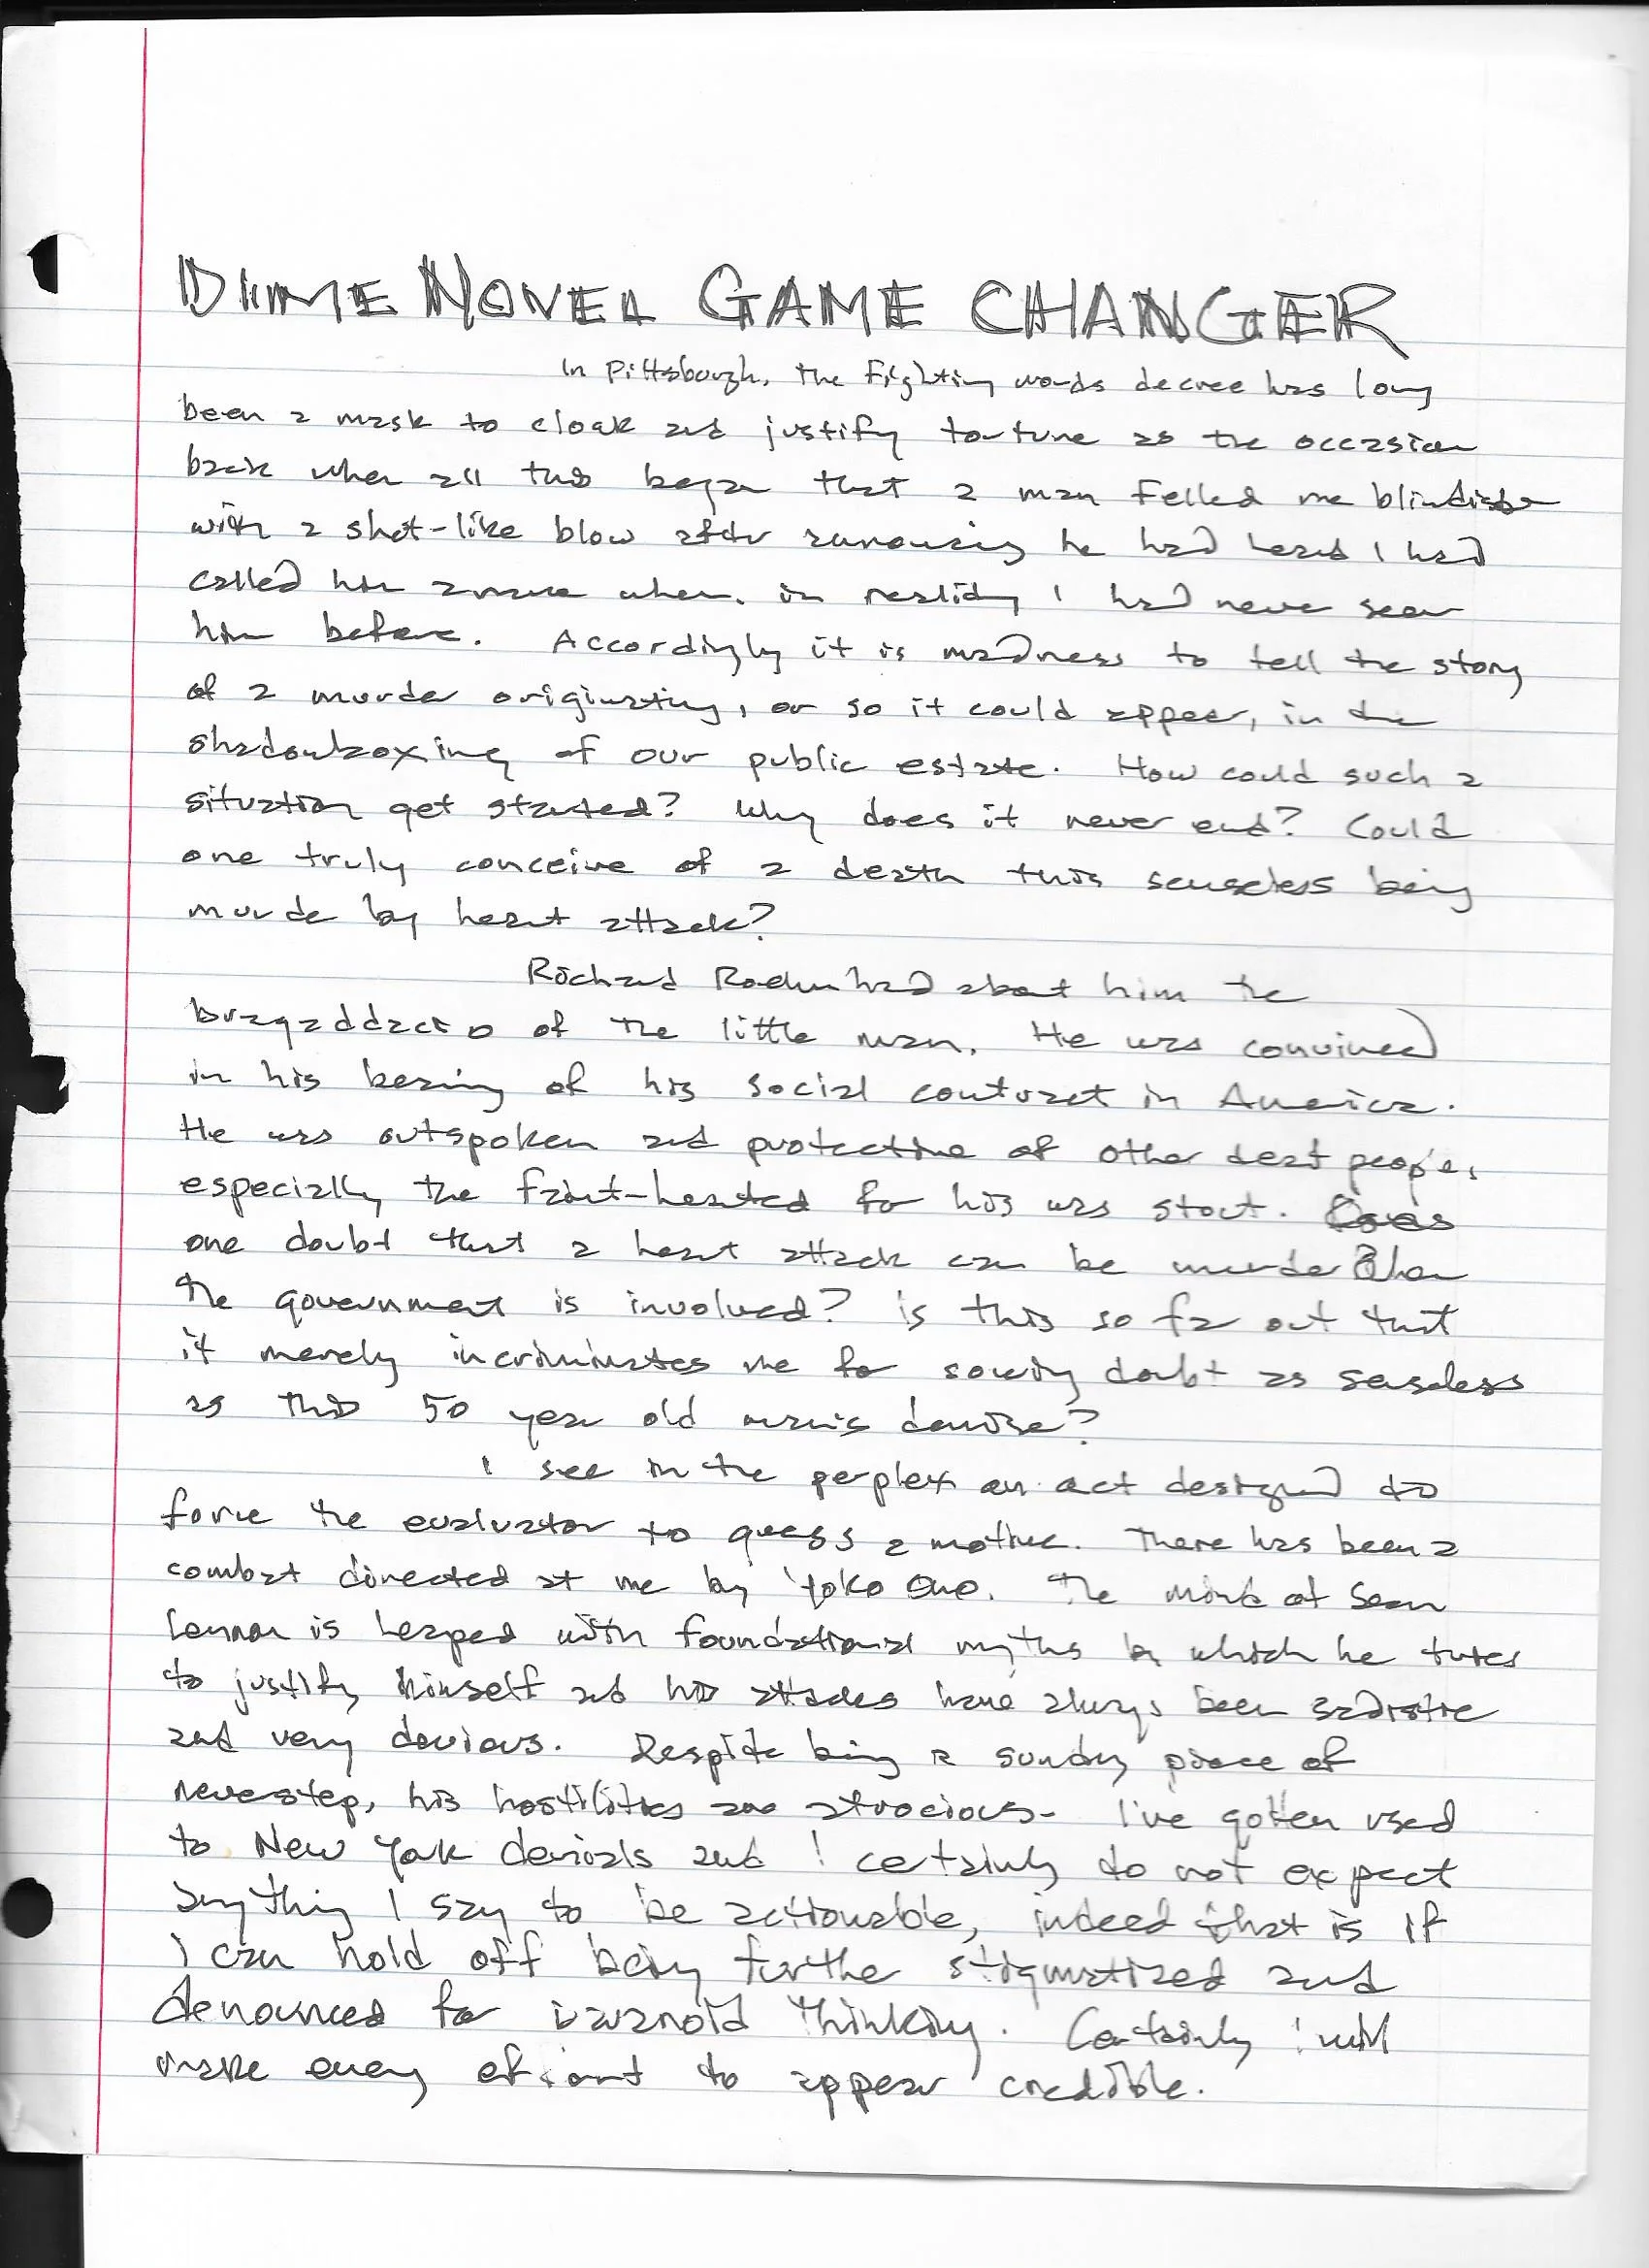 DIME NOVEL GAME CHANGER
In Pittsburgh, the fighting words decree has long
been a mask to cloak and justify torture as the occasion
back when all this began that a man felled me
with a shot-like blow after announcing he had heard I had
called him when, in reality I had never seen
him before. Accordingly it is madness to tell the story
of a murder originating, or so it could appear, in the
shadowboxing of our public estate. How could such a
situation get started? Why does it never end? Could
one truly conceive of a death this senseless being
murder by heart attack?
Richard had about him the
of the little man. He was convinced
in his bearing of his social contract in America.
He was outspoken and protective of other deaf people,
especially the faint-hearted for his was stout. Does
one doubt that a heart attack can be murder when
the government is involved? is this so far out that
it merely incriminates me for sowing doubt as senseless
as this 50 year old man's demise?
I see in the perplex an act designed to
force the evaluator to guess a motive. There has been a
combat directed at me by Yoko Ono. The mind of Sean
Lennon is heaped with foundational myths by which he
to justify himself and his attacks have always been sadistic
and very devious. Despite being a sundry piece of
neverstep, his hostilities are atrocious. I've gotten used
to New York denials and I certainly do not expect
anything I say to be actionable, indeed that is if
I can hold off being further stigmatized and
denounced for paranoid thinking. Certainly I will
make every effort to appear credible.